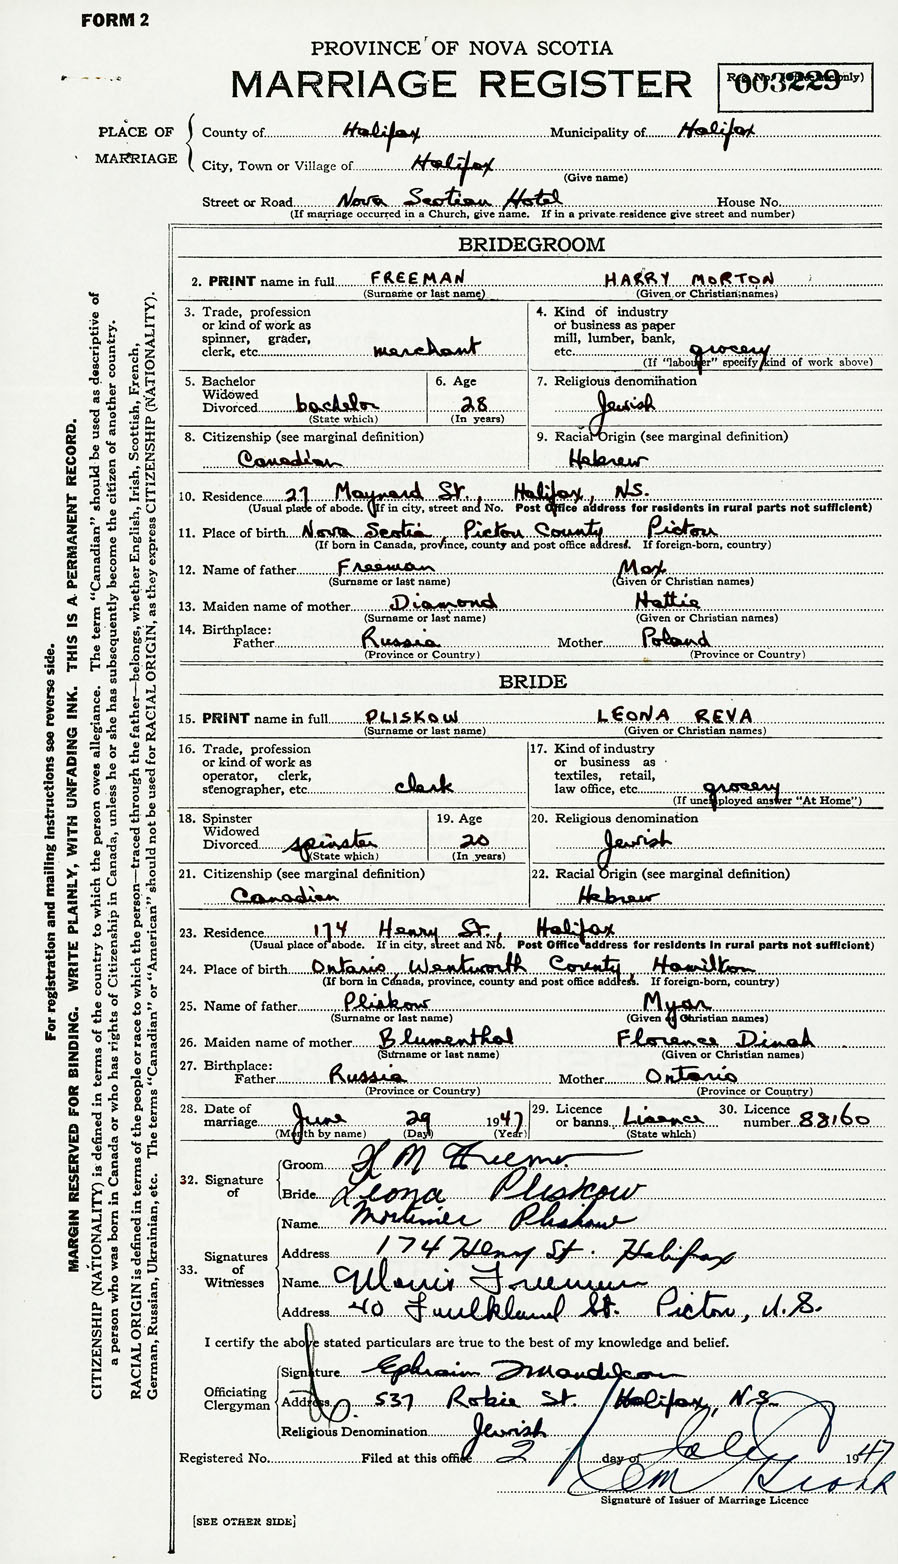 FORM 2
PROVINCE OF NOVA SCOTIA
MARRIAGE REGISTER
Reg. No. (Office use only)
003229
PLACE OF MARRIAGE
County of Halifax Municipality of Halifax
City, Town or Village of Halifax
(Give name)
Street or Road Nova Scotian Hotel House No.
(If marriage occurred in a Church, give name. If in a private residence give street and number)
BRIDEGROOM
2. PRINT name in full FREEMAN HARRY MORTON
(Surname or last name) (Given or Christian names)
3. Trade, profession or kind of work as spinner, grader, clerk, etc. merchant
4. Kind of industry or business as paper mill, lumber, bank, etc. grocery
(If "labourer" specify kind of work above)
5. Bachelor Widowed Divorced bachelor
(State which)
6. Age 28
(In years)
7. Religious denomination
Jewish
8. Citizenship (see marginal definition)
Canadian
9. Racial Origin (see marginal definition)
Hebrew
10. Residence 27 Maynard St., Halifax, N.S.
(Usual place of abode. If in city, street and No. Post Office address for residents in rural parts not sufficient)
11. Place of birth Nova Scotia, Pictou County Pictou
(If born in Canada, province, county and post office address. If foreign-born, country)
12. Name of father Freeman Max
(Surname or last name) (Given or Christian names)
13. Maiden name of mother Diamond Hattie
(Surname or last name) (Given or Christian names)
14. Birthplace:
Father Russia Mother Poland
(Province or Country) (Province or Country)
BRIDE
15. PRINT name in full PLISKOW LEONA REVA
(Surname or last name) (Given or Christian names)
16. Trade, profession or kind of work as operator, clerk, stenographer, etc. clerk
17. Kind of industry or business as textiles, retail, law office, etc. grocery
(If unemployed answer "At Home")
18. Spinster Widowed Divorced spinster
(State which)
19. Age 20
(In years)
20. Religious denomination
Jewish
21. Citizenship (see marginal definition)
Canadian
22. Racial Origin (see marginal definition)
Hebrew
23. Residence 174 Henry St., Halifax
(Usual place of abode. If in city, street and No. Post Office address for residents in rural parts not sufficient)
24. Place of birth Ontario, Wentworth County, Hamilton
(If born in Canada, province, county and post office address. If foreign-born, country)
25. Name of father Pliskow Myar
(Surname or last name) (Given or Christian names)
26. Maiden name of mother Blumenthal Florence Dinah
(Surname or last name) (Given or Christian names)
27. Birthplace:
Father Russia Mother Ontario
(Province or Country) (Province or Country)
28. Date of marriage June 29 1947
(Month by name) (Day) (Year)
29. Licence or banns Lisence
(State which)
30. Licence number 88160
32. Signature of
Groom H M Freeman
Bride Leona Pliskow
33. Signatures of Witnesses
Name Mortimer Pliskow
Address 174 Henry St. Halifax
Name Freeman
Address 40 Faulkland St. Pictou, N.S.
I certify the above stated particulars are true to the best of my knowledge and belief.
Officiating Clergyman
Signature Ephraim Mandelcorn
Address 537 Robie St. Halifax, N.S.
Religious Denomination Jewish
Registered No. Filed at this office 2 day of July 1947
Signature of Issuer of Marriage Licence
[SEE OTHER SIDE]
For registration and mailing instructions see reverse side.
MARGIN RESERVED FOR BINDING. WRITE PLAINLY, WITH UNFADING INK. THIS IS A PERMANENT RECORD.
CITIZENSHIP (NATIONALITY) is defined in terms of the country to which the person owes allegiance. The term "Canadian" should be used as descriptive of
a person who was born in Canada or who has rights of Citizenship in Canada, unless he or she has subsequently become the citizen of another country.
RACIAL ORIGIN is defined in terms of the people or race to which the person—traced through the father—belongs, whether English, Irish, Scottish, French,
German, Russian, Ukrainian, etc. The terms "Canadian" or "American" should not be used for RACIAL ORIGIN, as they express CITIZENSHIP (NATIONALITY).